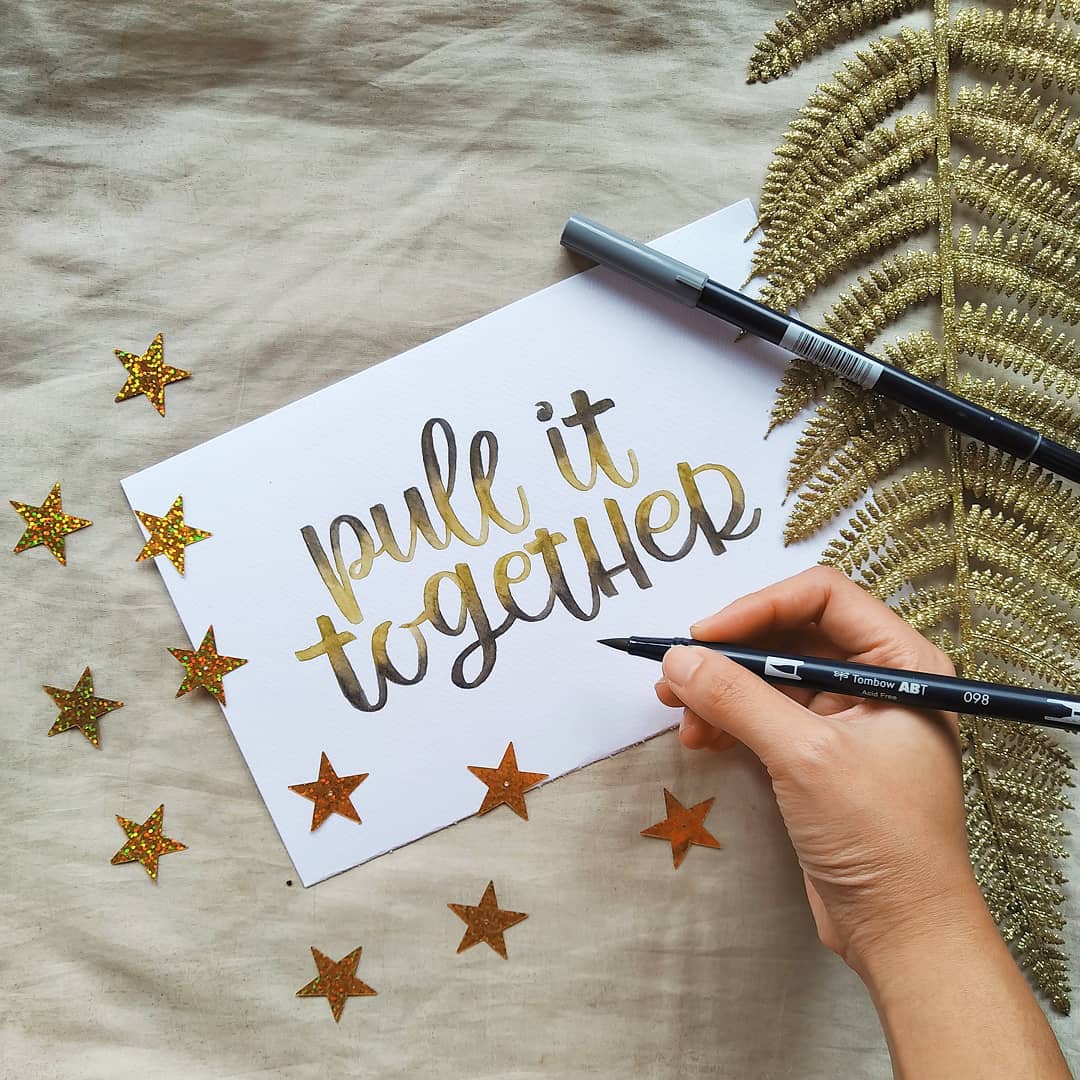 pull it
togetHeR
Tombow ABT
Acid Free
098